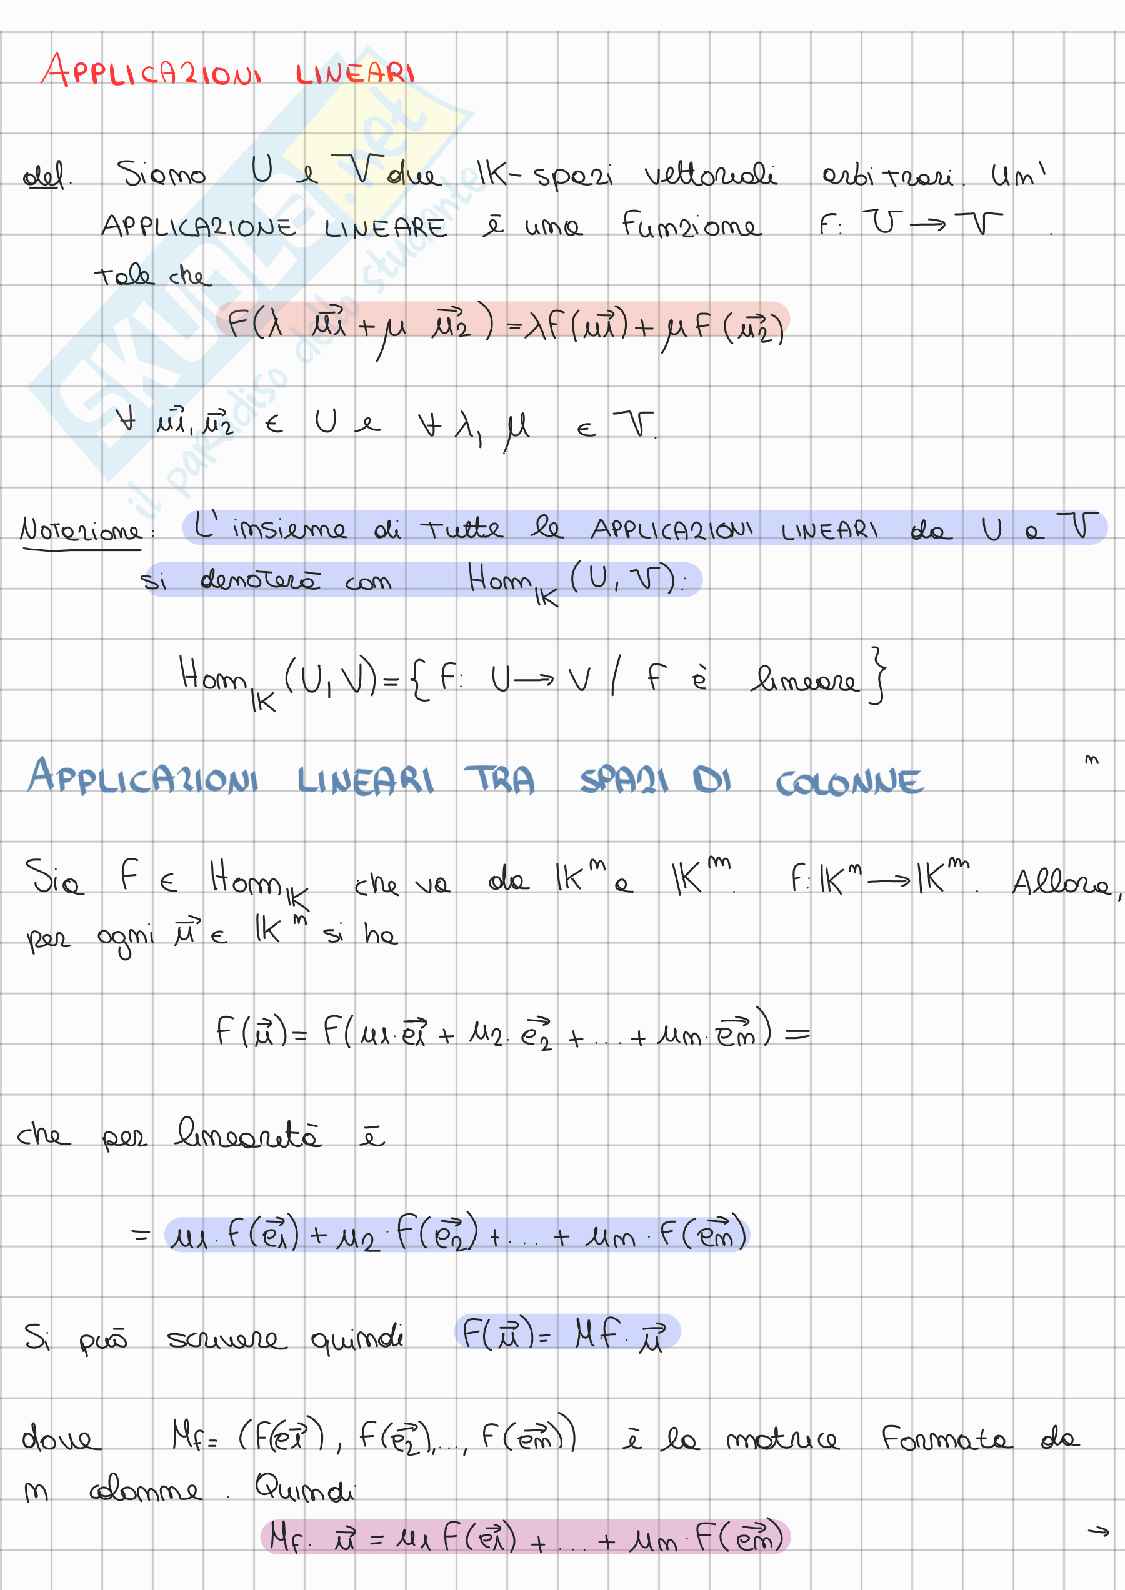 APPLICAZIONI LINEARI
def. Siano U e V due IK-spazi vettoriali arbitrari. Un'
APPLICAZIONE LINEARE è una funzione F: U → V .
Tale che
F(λ u⃗1 + μ u⃗2) = λF(u⃗1) + μF(u⃗2)
∀ u⃗1, u⃗2 ∈ U e ∀ λ, μ ∈ V.
Notazione: L'insieme di tutte le APPLICAZIONI LINEARI da U a V
si denoterà con Hom IK (U, V):
Hom IK (U, V) = { F: U → V / F è lineare }
APPLICAZIONI LINEARI TRA SPAZI DI COLONNE
n
Sia F ∈ Hom IK che va da IKⁿ a IKᵐ. F: IKⁿ → IKᵐ. Allora,
per ogni u⃗ ∈ IKⁿ si ha
F(u⃗) = F(u1·e⃗1 + u2·e⃗2 + ... + un·e⃗n) =
che per linearità è
= u1·F(e⃗1) + u2·F(e⃗2) + ... + un·F(e⃗n)
Si può scrivere quindi F(u⃗) = MF·u⃗
dove MF = (F(e⃗1), F(e⃗2),..., F(e⃗n)) è la matrice formata da
n colonne. Quindi
MF·u⃗ = u1 F(e⃗1) + ... + un·F(e⃗n) →
SKUOLA.net
il paradiso dello studente